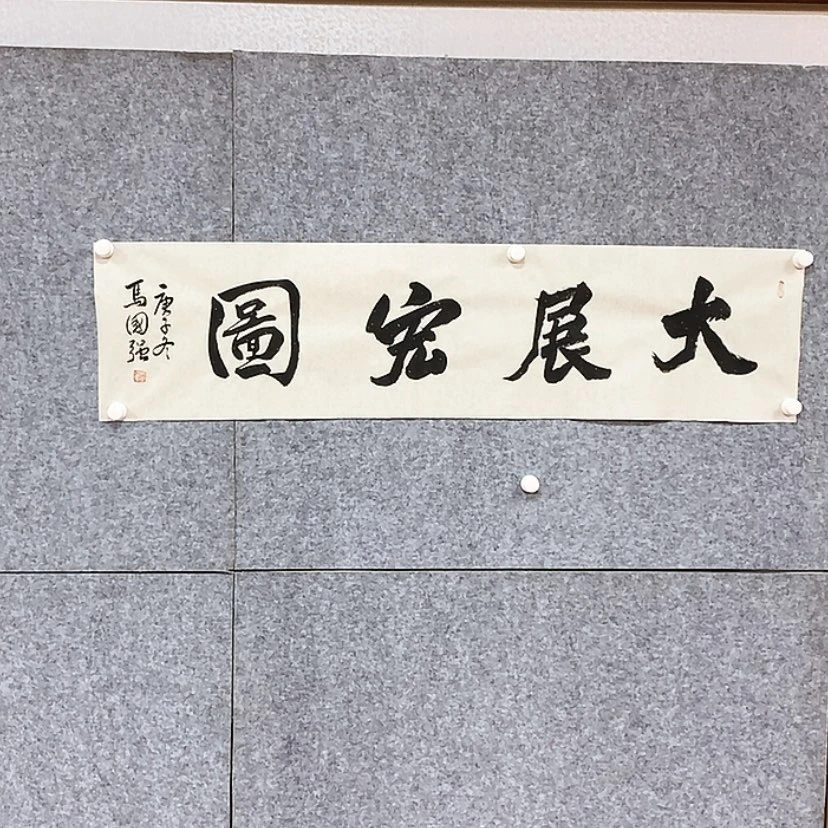 大展宏圖
庚子冬
馬國强